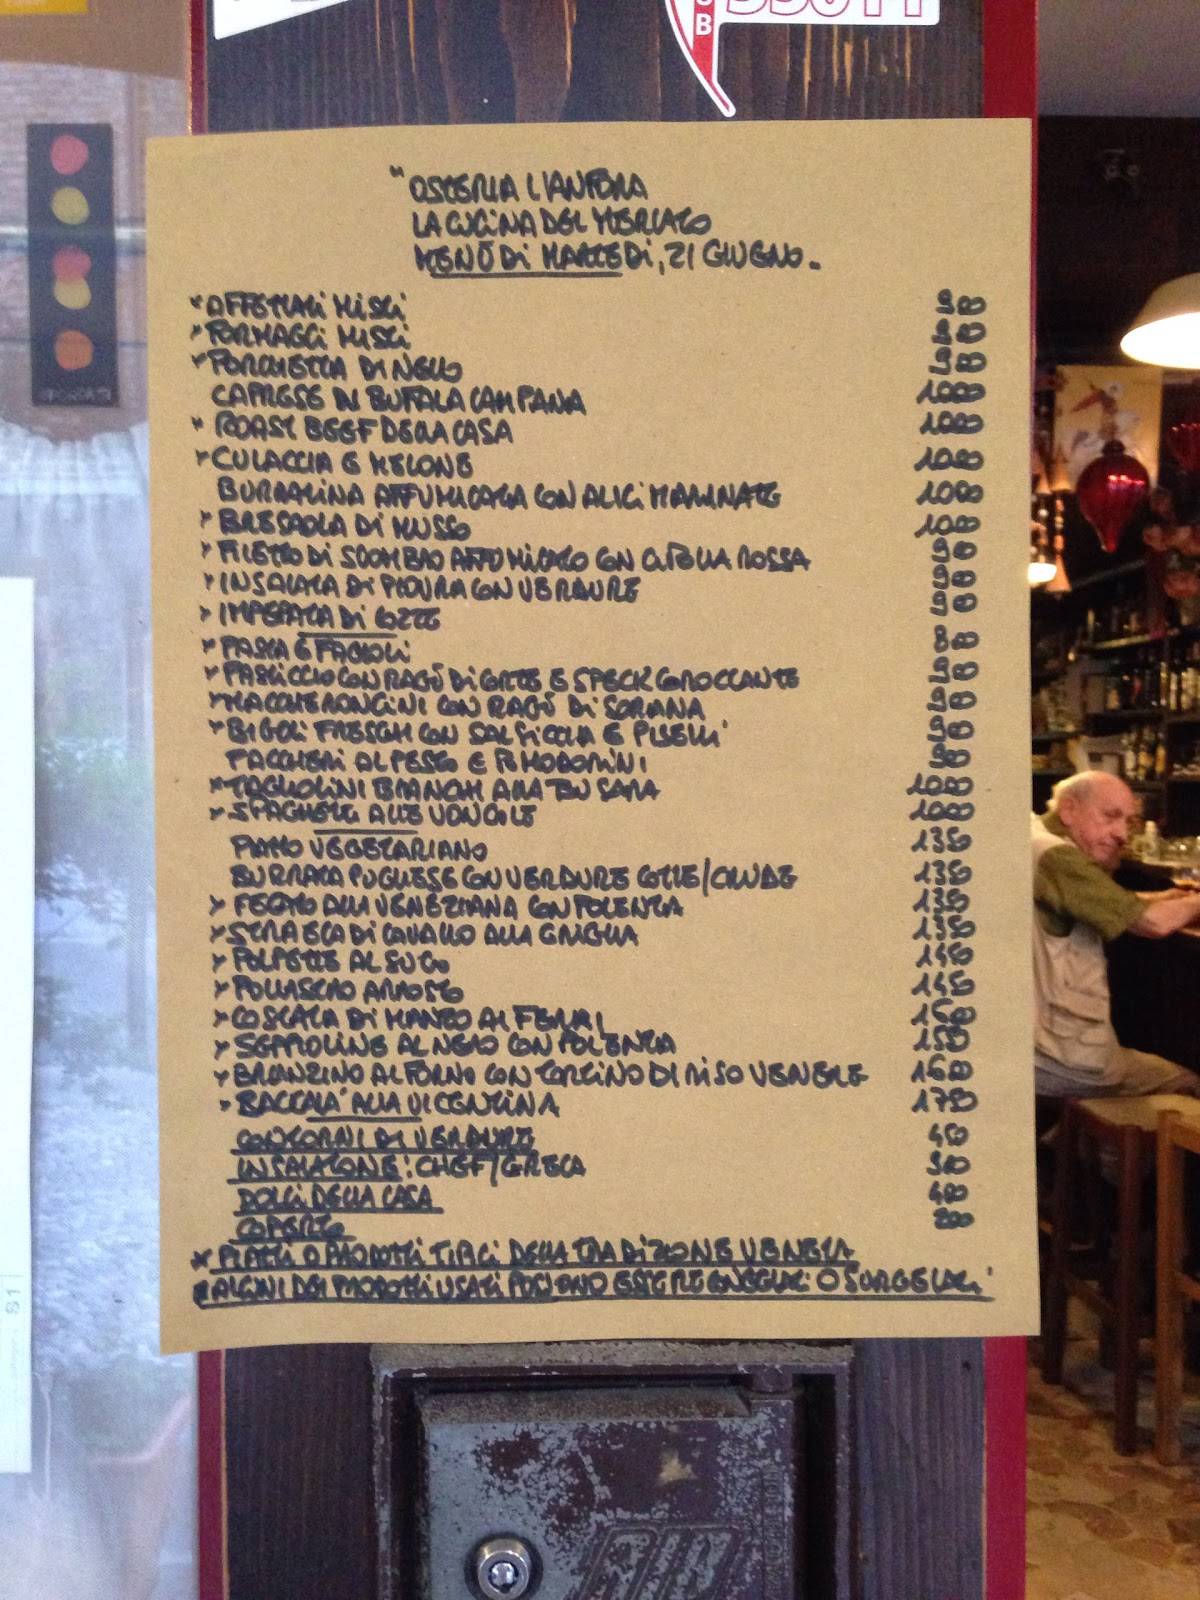 "OSTERIA L'ANFORA
LA CUCINA DEL MERCATO
MENÙ DI MARTEDI, 21 GIUGNO.
* AFFETTATI MISTI 9 00
* FORMAGGI MISTI 9 00
* PORCHETTA DI NELLO 9 00
CAPRESE DI BUFALA CAMPANA 10 00
* ROAST BEEF DELLA CASA 10 00
* CULACCIA E MELONE 10 00
BURRATINA AFFUMICATA CON ALICI MARINATE 10 00
* BRESAOLA DI MUSSO 10 00
* FILETTO DI SGOMBRO AFFUMICATO CON CIPOLLA ROSSA 9 00
* INSALATA DI PIOVRA CON VERDURE 9 00
* IMPEPATA DI COZZE 9 00
* PASTA E FAGIOLI 8 00
* PASTICCIO CON RAGÙ DI CORTE E SPECK CROCCANTE 9 00
* MACCHERONCINI CON RAGÙ DI SORANA 9 00
* BIGOLI FRESCHI CON SALSICCIA E PISELLI 9 00
PACCHERI AL PESTO E POMODORINI 9 00
* TAGLIOLINI BRANCHI ALLA BUSARA 10 00
* SPAGHETTI ALLE VONGOLE 10 00
PIATTO VEGETARIANO 13 50
BURRATA PUGLIESE CON VERDURE COTTE/CRUDE 13 50
* FEGATO ALLA VENEZIANA CON POLENTA 13 50
* STRAECA DI CAVALLO ALLA GRIGLIA 13 50
* POLPETTE AL SUGO 14 50
* POLLASTRO ARROSTO 14 50
* COSTATA DI MANZO AI FERRI 15 00
* SEPPIOLINE AL NERO CON POLENTA 15 50
* BRANZINO AL FORNO CON TORTINO DI RISO VENERE 16 00
* BACCALA' ALLA VICENTINA 17 50
CONTORNI DI VERDURE 4 50
INSALATONE: CHEF/GRECA 9 00
DOLCI DELLA CASA 4 00
COPERTO 2 00
* PIATTI O PRODOTTI TIPICI DELLA TRADIZIONE VENETA
* ALCUNI DEI PRODOTTI USATI POSSONO ESSERE CONGELATI O SURGELATI